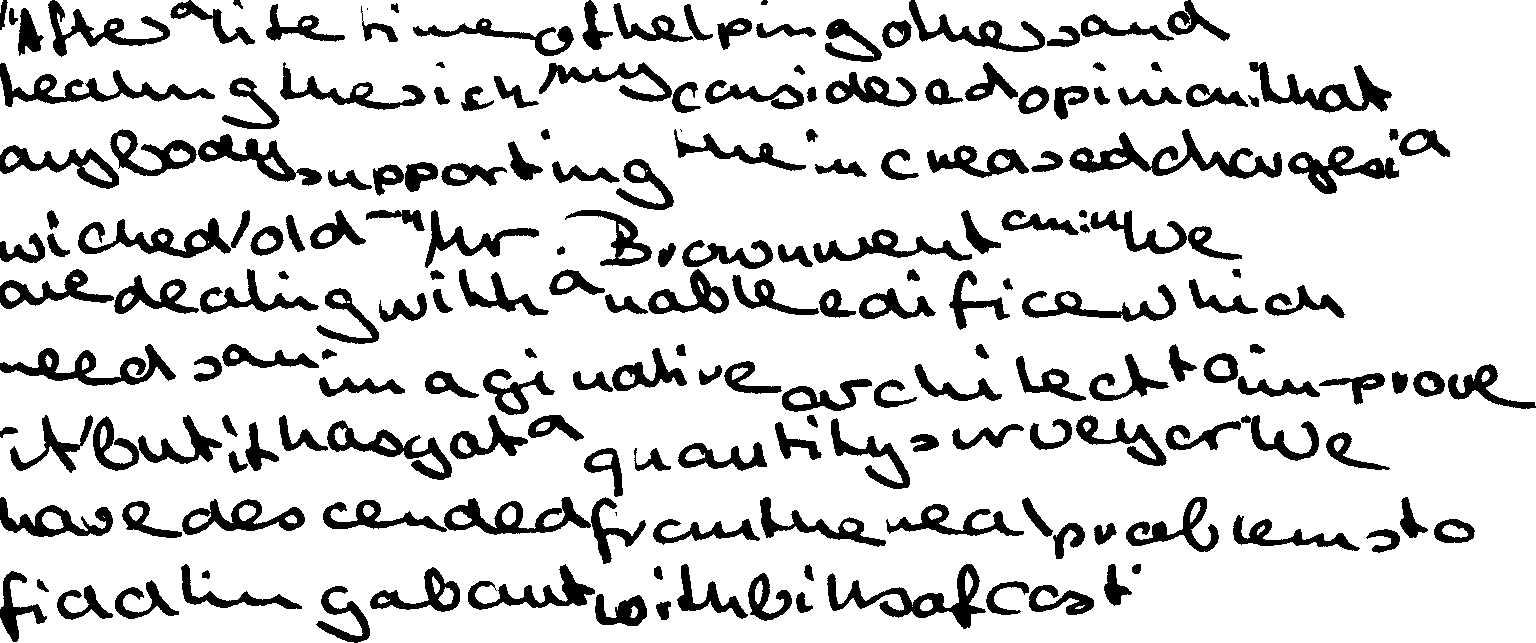 "After a life time of helping others and
healing the sick my considered opinion: that
anybody supporting the increased charges is a
wicked old -" Mr. Brown went on: "We
are dealing with a noble edifice which
needs an imaginative architect to im-prove
it but it has got a quantity surveyor" We
have descended from the real problems to
fiddling about with bills of cost